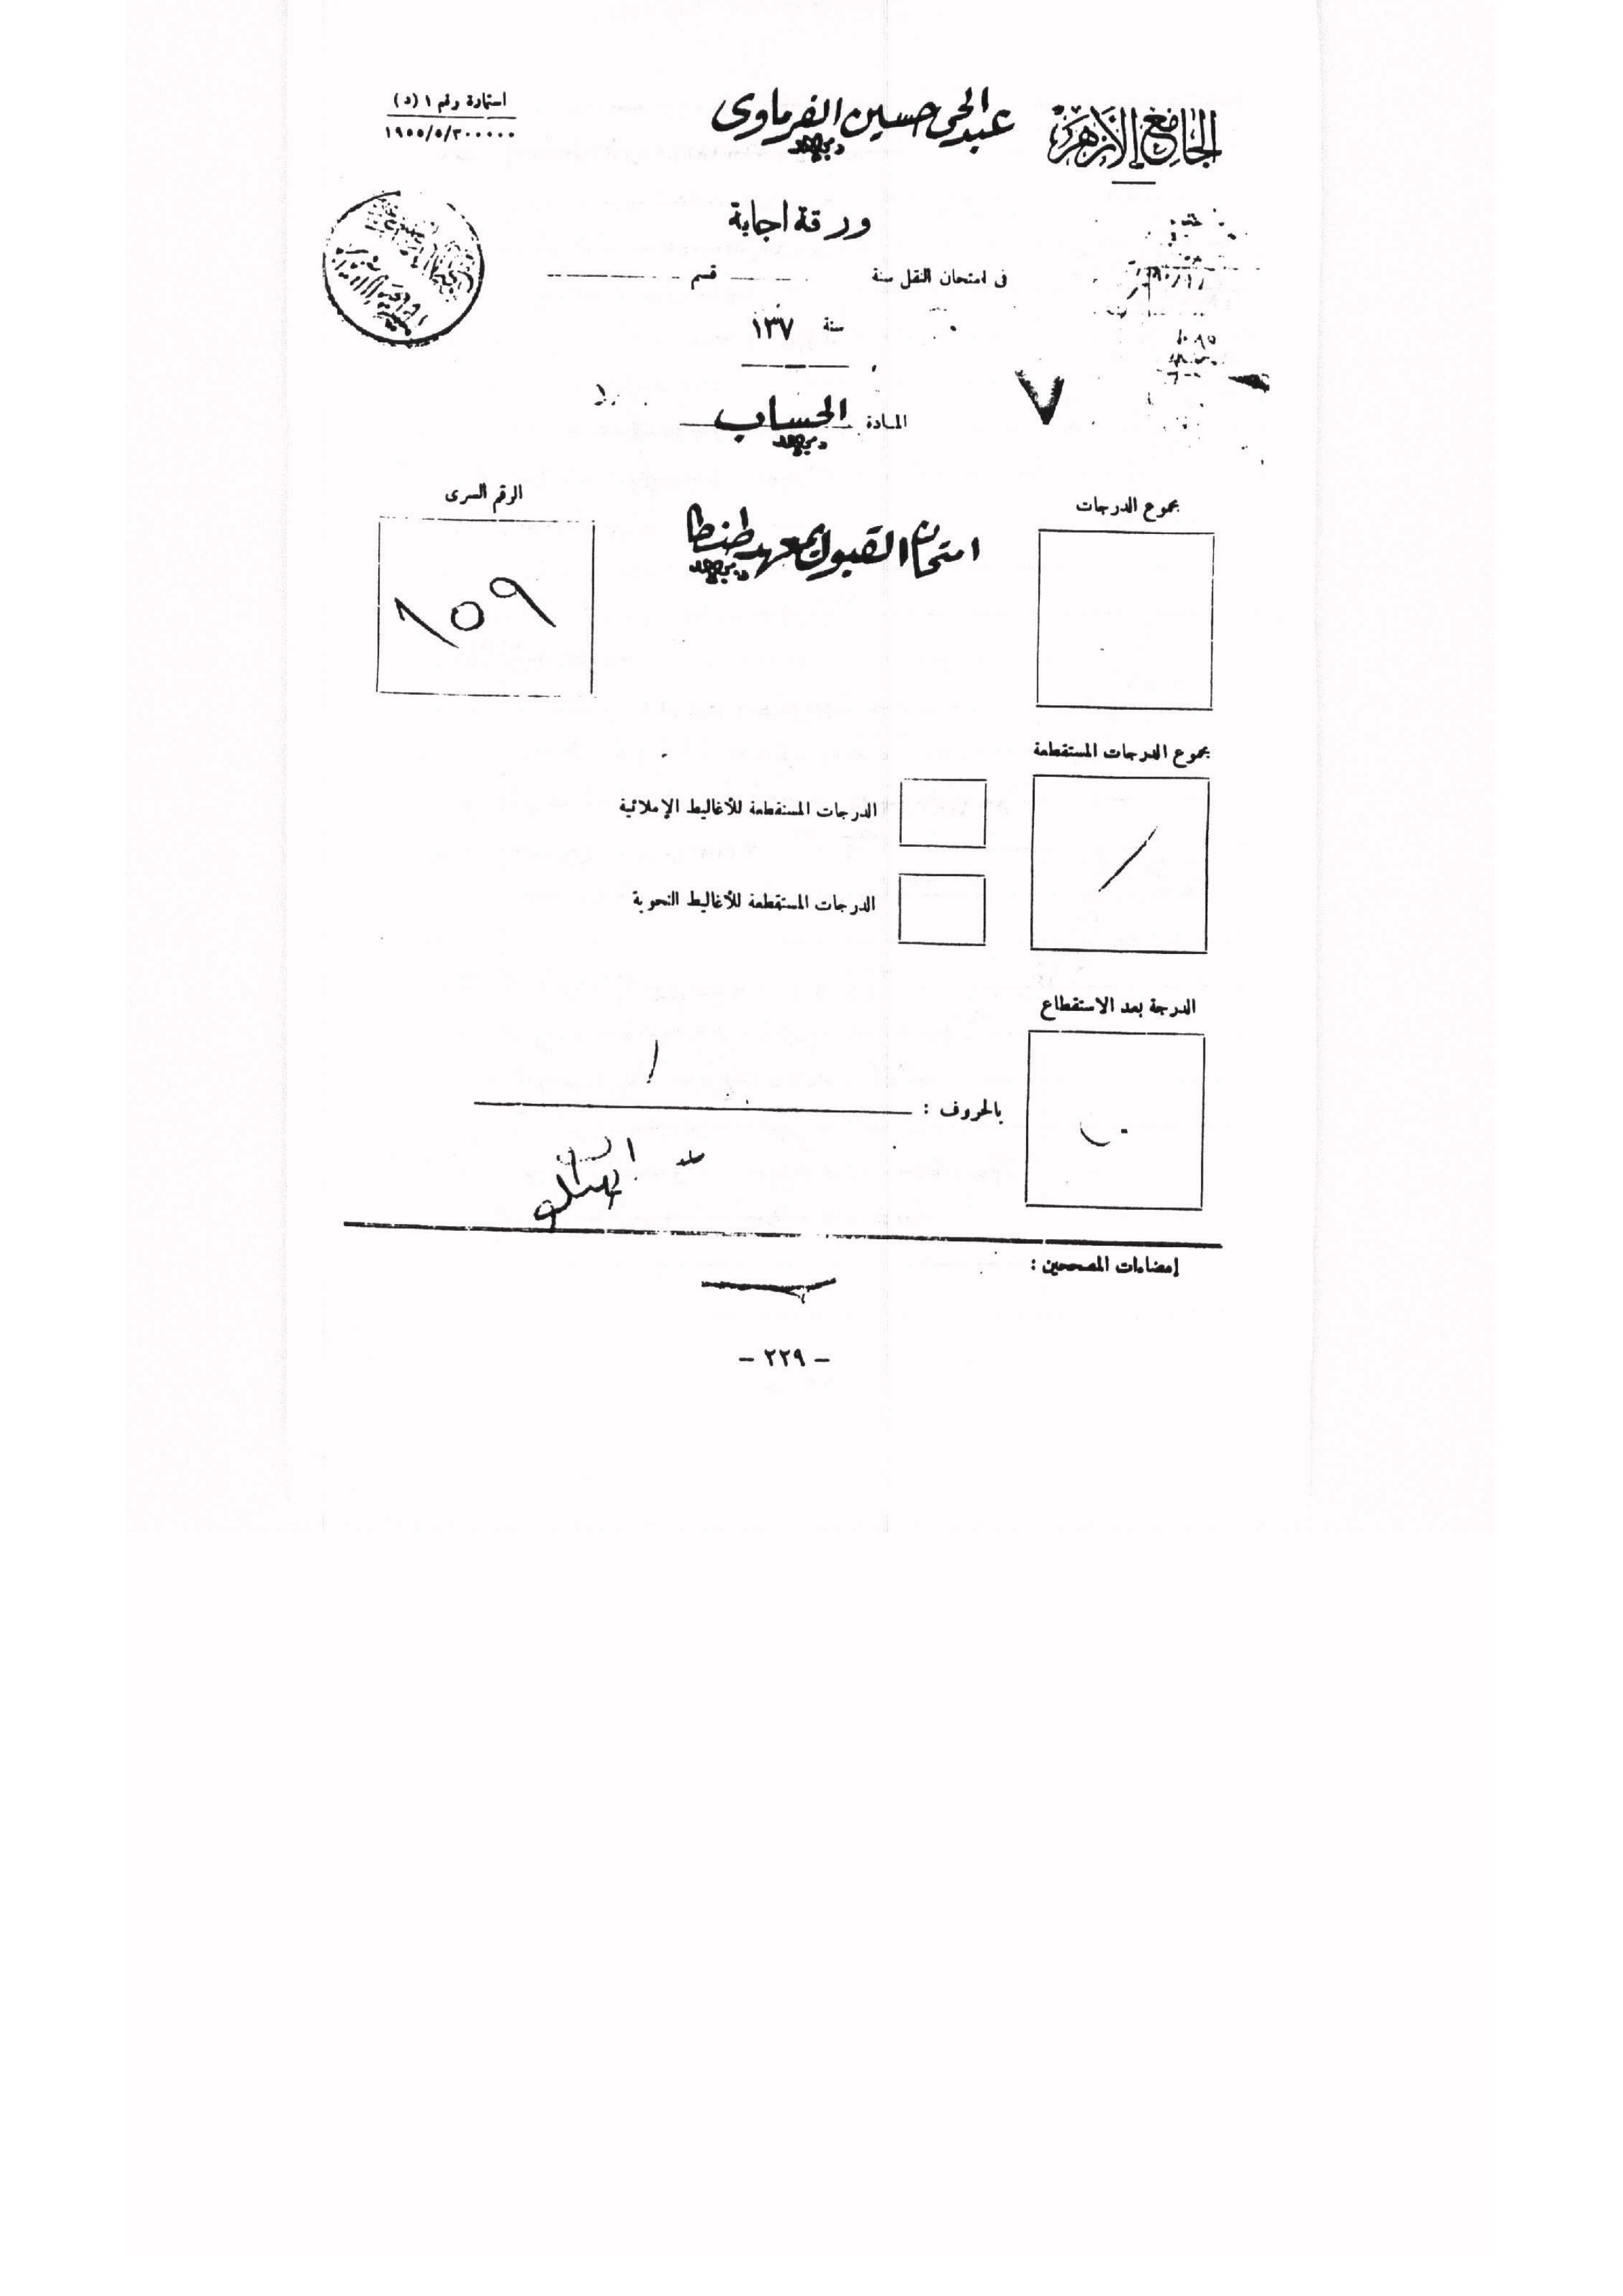 الجامع الأزهر
عبد الحى حسين الفرماوى
استمارة رقم ١ (د)
١٩٥٥/٥/٣٠٠٠٠٠
ورقة اجابة
فى امتحان النقل سنة قسم
سنة ١٣٧
٧
المادة الحساب
امتحان القبول بمعهد طنطا
الرقم السرى
١٥٩
مجموع الدرجات
مجموع الدرجات المستقطعة
الدرجات المستقطعة للأغاليط الإملائية
الدرجات المستقطعة للأغاليط النحوية
الدرجة بعد الاستقطاع
بالحروف :
إمضاءات المصححين :
- ٢٢٩ -